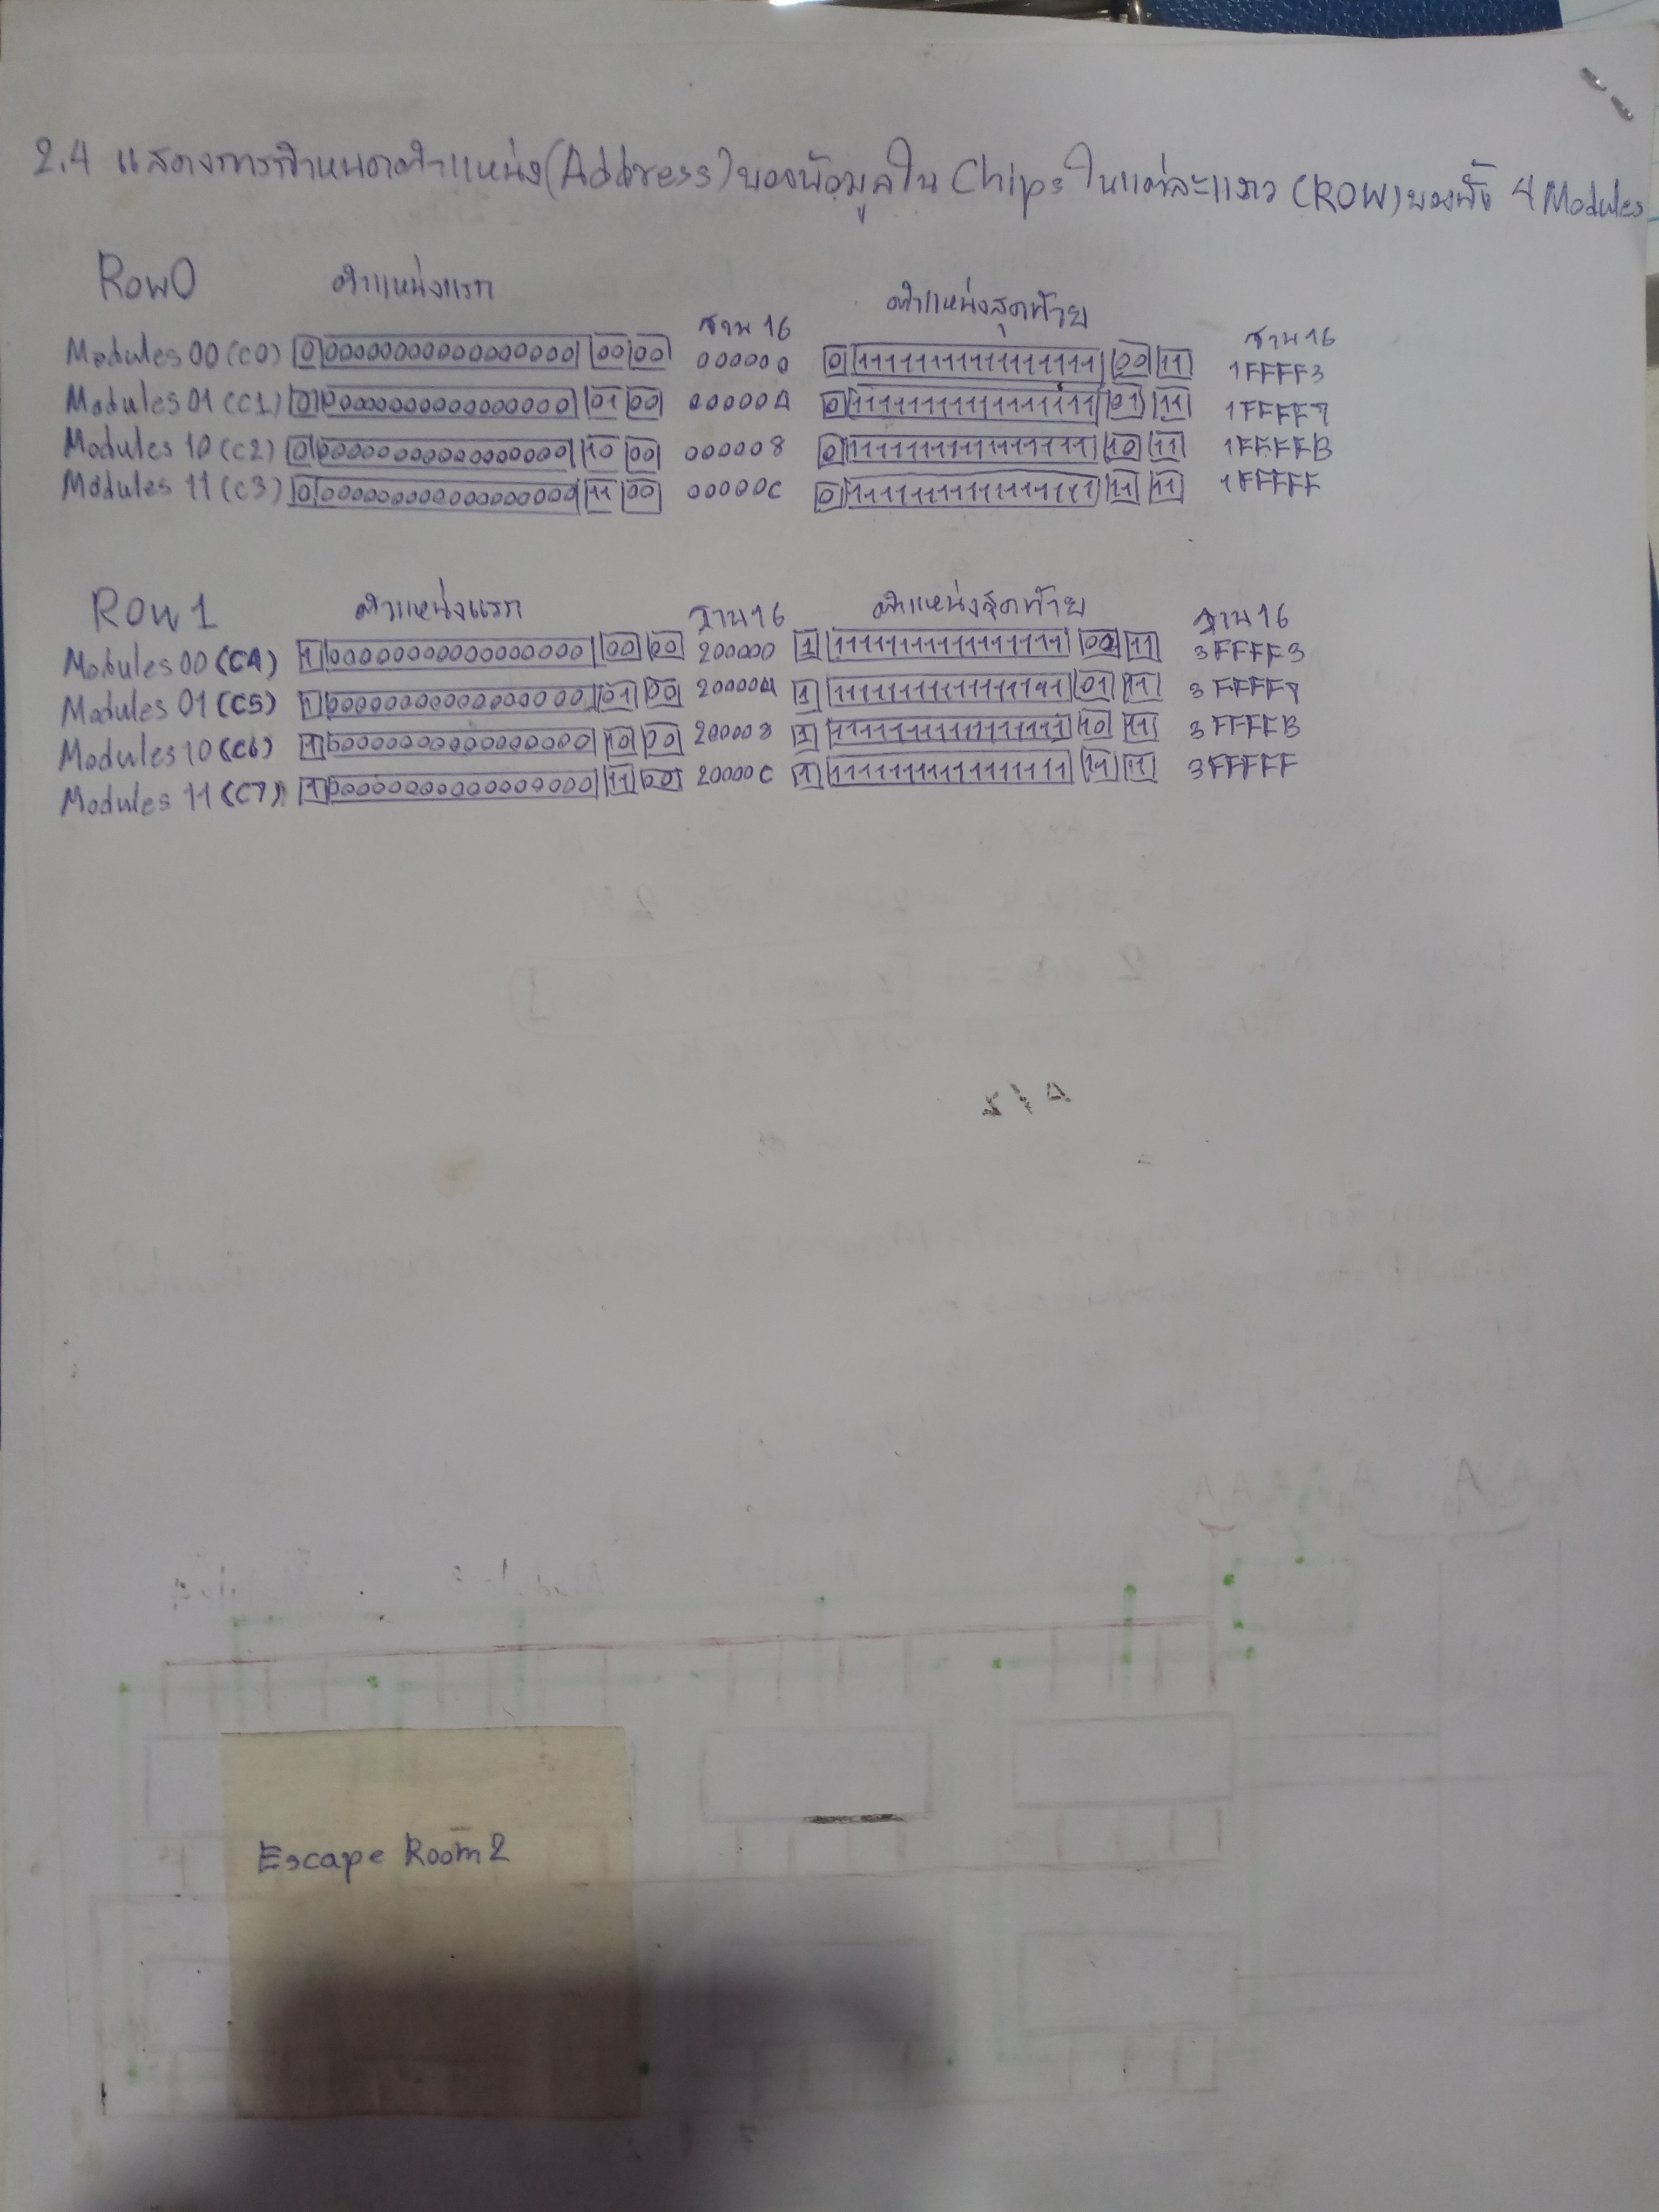 2.4 แสดงการกำหนดตำแหน่ง(Address)ของข้อมูลใน Chips ในแต่ละแถว (ROW) ของทั้ง 4 Modules
Row0 ตำแหน่งแรก ฐาน 16 ตำแหน่งสุดท้าย ฐาน 16
Modules 00 (C0) 0 00000000000000000 00 00 000000 0 11111111111111111 00 11 1FFFF3
Modules 01 (C1) 0 00000000000000000 01 00 000004 0 11111111111111111 01 11 1FFFF7
Modules 10 (C2) 0 00000000000000000 10 00 000008 0 11111111111111111 10 11 1FFFFB
Modules 11 (C3) 0 00000000000000000 11 00 00000C 0 11111111111111111 11 11 1FFFFF
Row1 ตำแหน่งแรก ฐาน 16 ตำแหน่งสุดท้าย ฐาน 16
Modules 00 (C4) 1 00000000000000000 00 00 200000 1 11111111111111111 00 11 3FFFF3
Modules 01 (C5) 1 00000000000000000 01 00 200004 1 11111111111111111 01 11 3FFFF7
Modules 10 (C6) 1 00000000000000000 10 00 200008 1 11111111111111111 10 11 3FFFFB
Modules 11 (C7) 1 00000000000000000 11 00 20000C 1 11111111111111111 11 11 3FFFFF
Escape Room 2